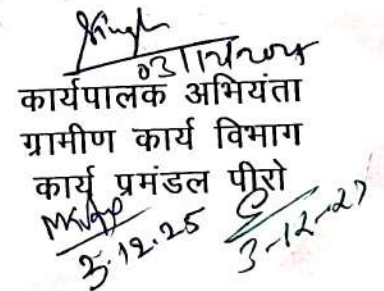 03/12/2025
कार्यपालक अभियंता
ग्रामीण कार्य विभाग
कार्य प्रमंडल पीरो
3.12.25